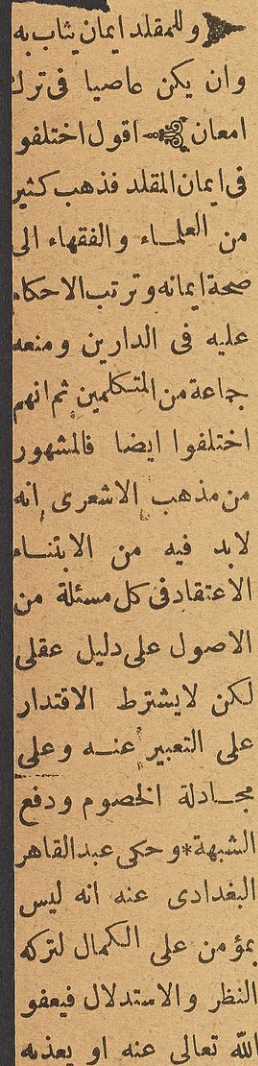 وللمقلد ايمان يثاب به
وان يكن عاصيا فى ترك
امعان اقول اختلفو
فى ايمان المقلد فذهب كثير
من العلماء والفقهاء الى
صحة ايمانه وترتب الاحكام
عليه فى الدارين ومنعه
جماعة من المتكلمين ثم انهم
اختلفوا ايضا فالمشهور
من مذهب الاشعرى انه
لابد فيه من الابتناء
الاعتقاد فى كل مسئلة من
الاصول على دليل عقلى
لكن لايشترط الاقتدار
على التعبير عنه وعلى
مجادلة الخصوم ودفع
الشبهة * وحكى عبدالقاهر
البغدادى عنه انه ليس
بمؤمن على الكمال لتركه
النظر والاستدلال فيعفو
الله تعالى عنه او يعذبه